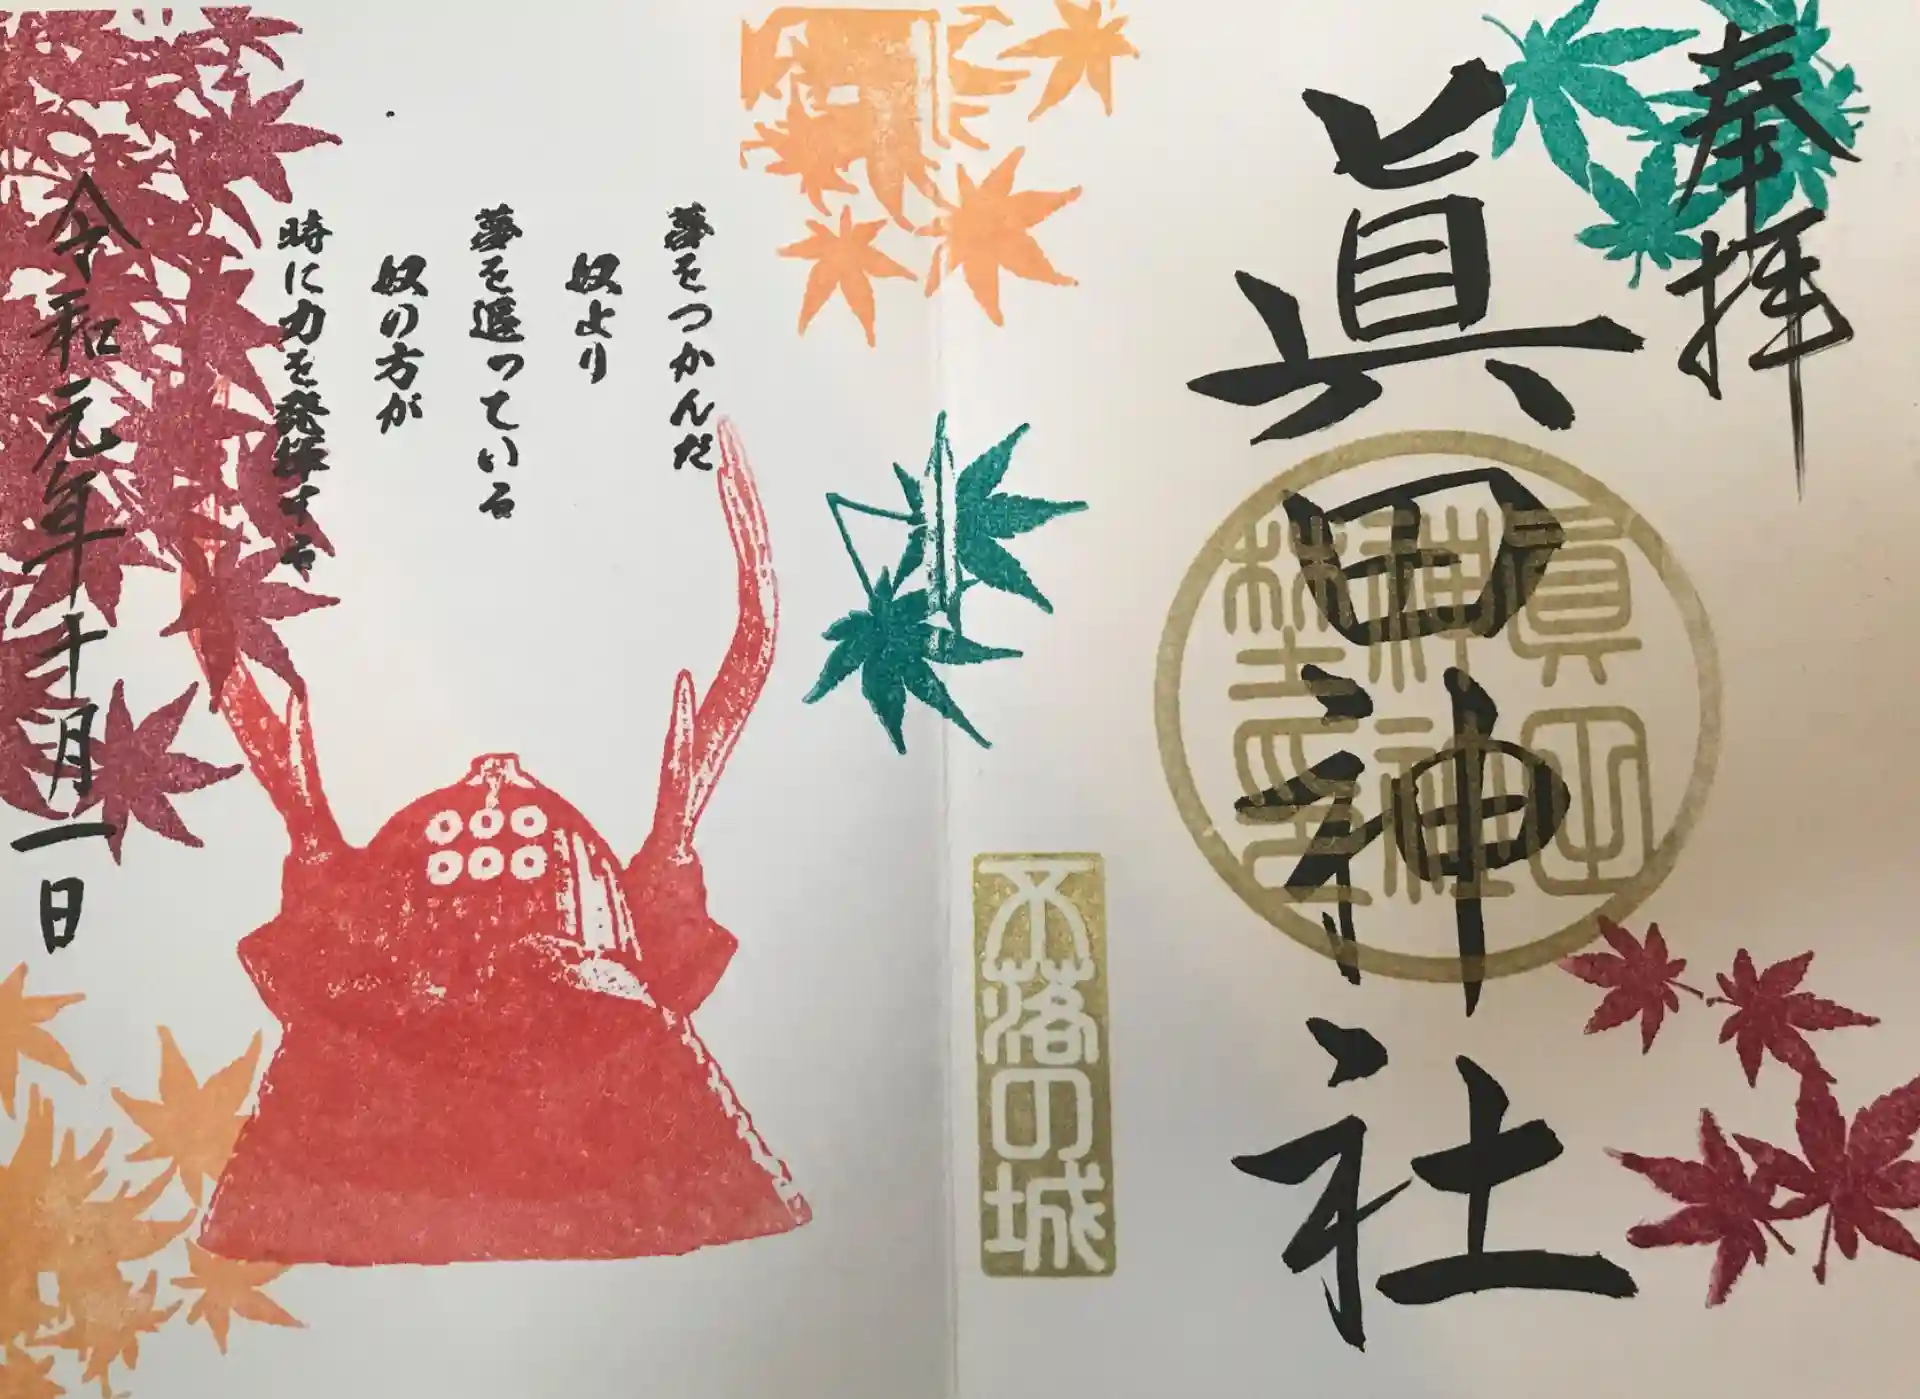 奉拝
眞田神社
眞田
神社
不落の城
夢をつかんだ
奴より
夢を追っている
奴の方が
時に力を発揮する
令和元年十月一日